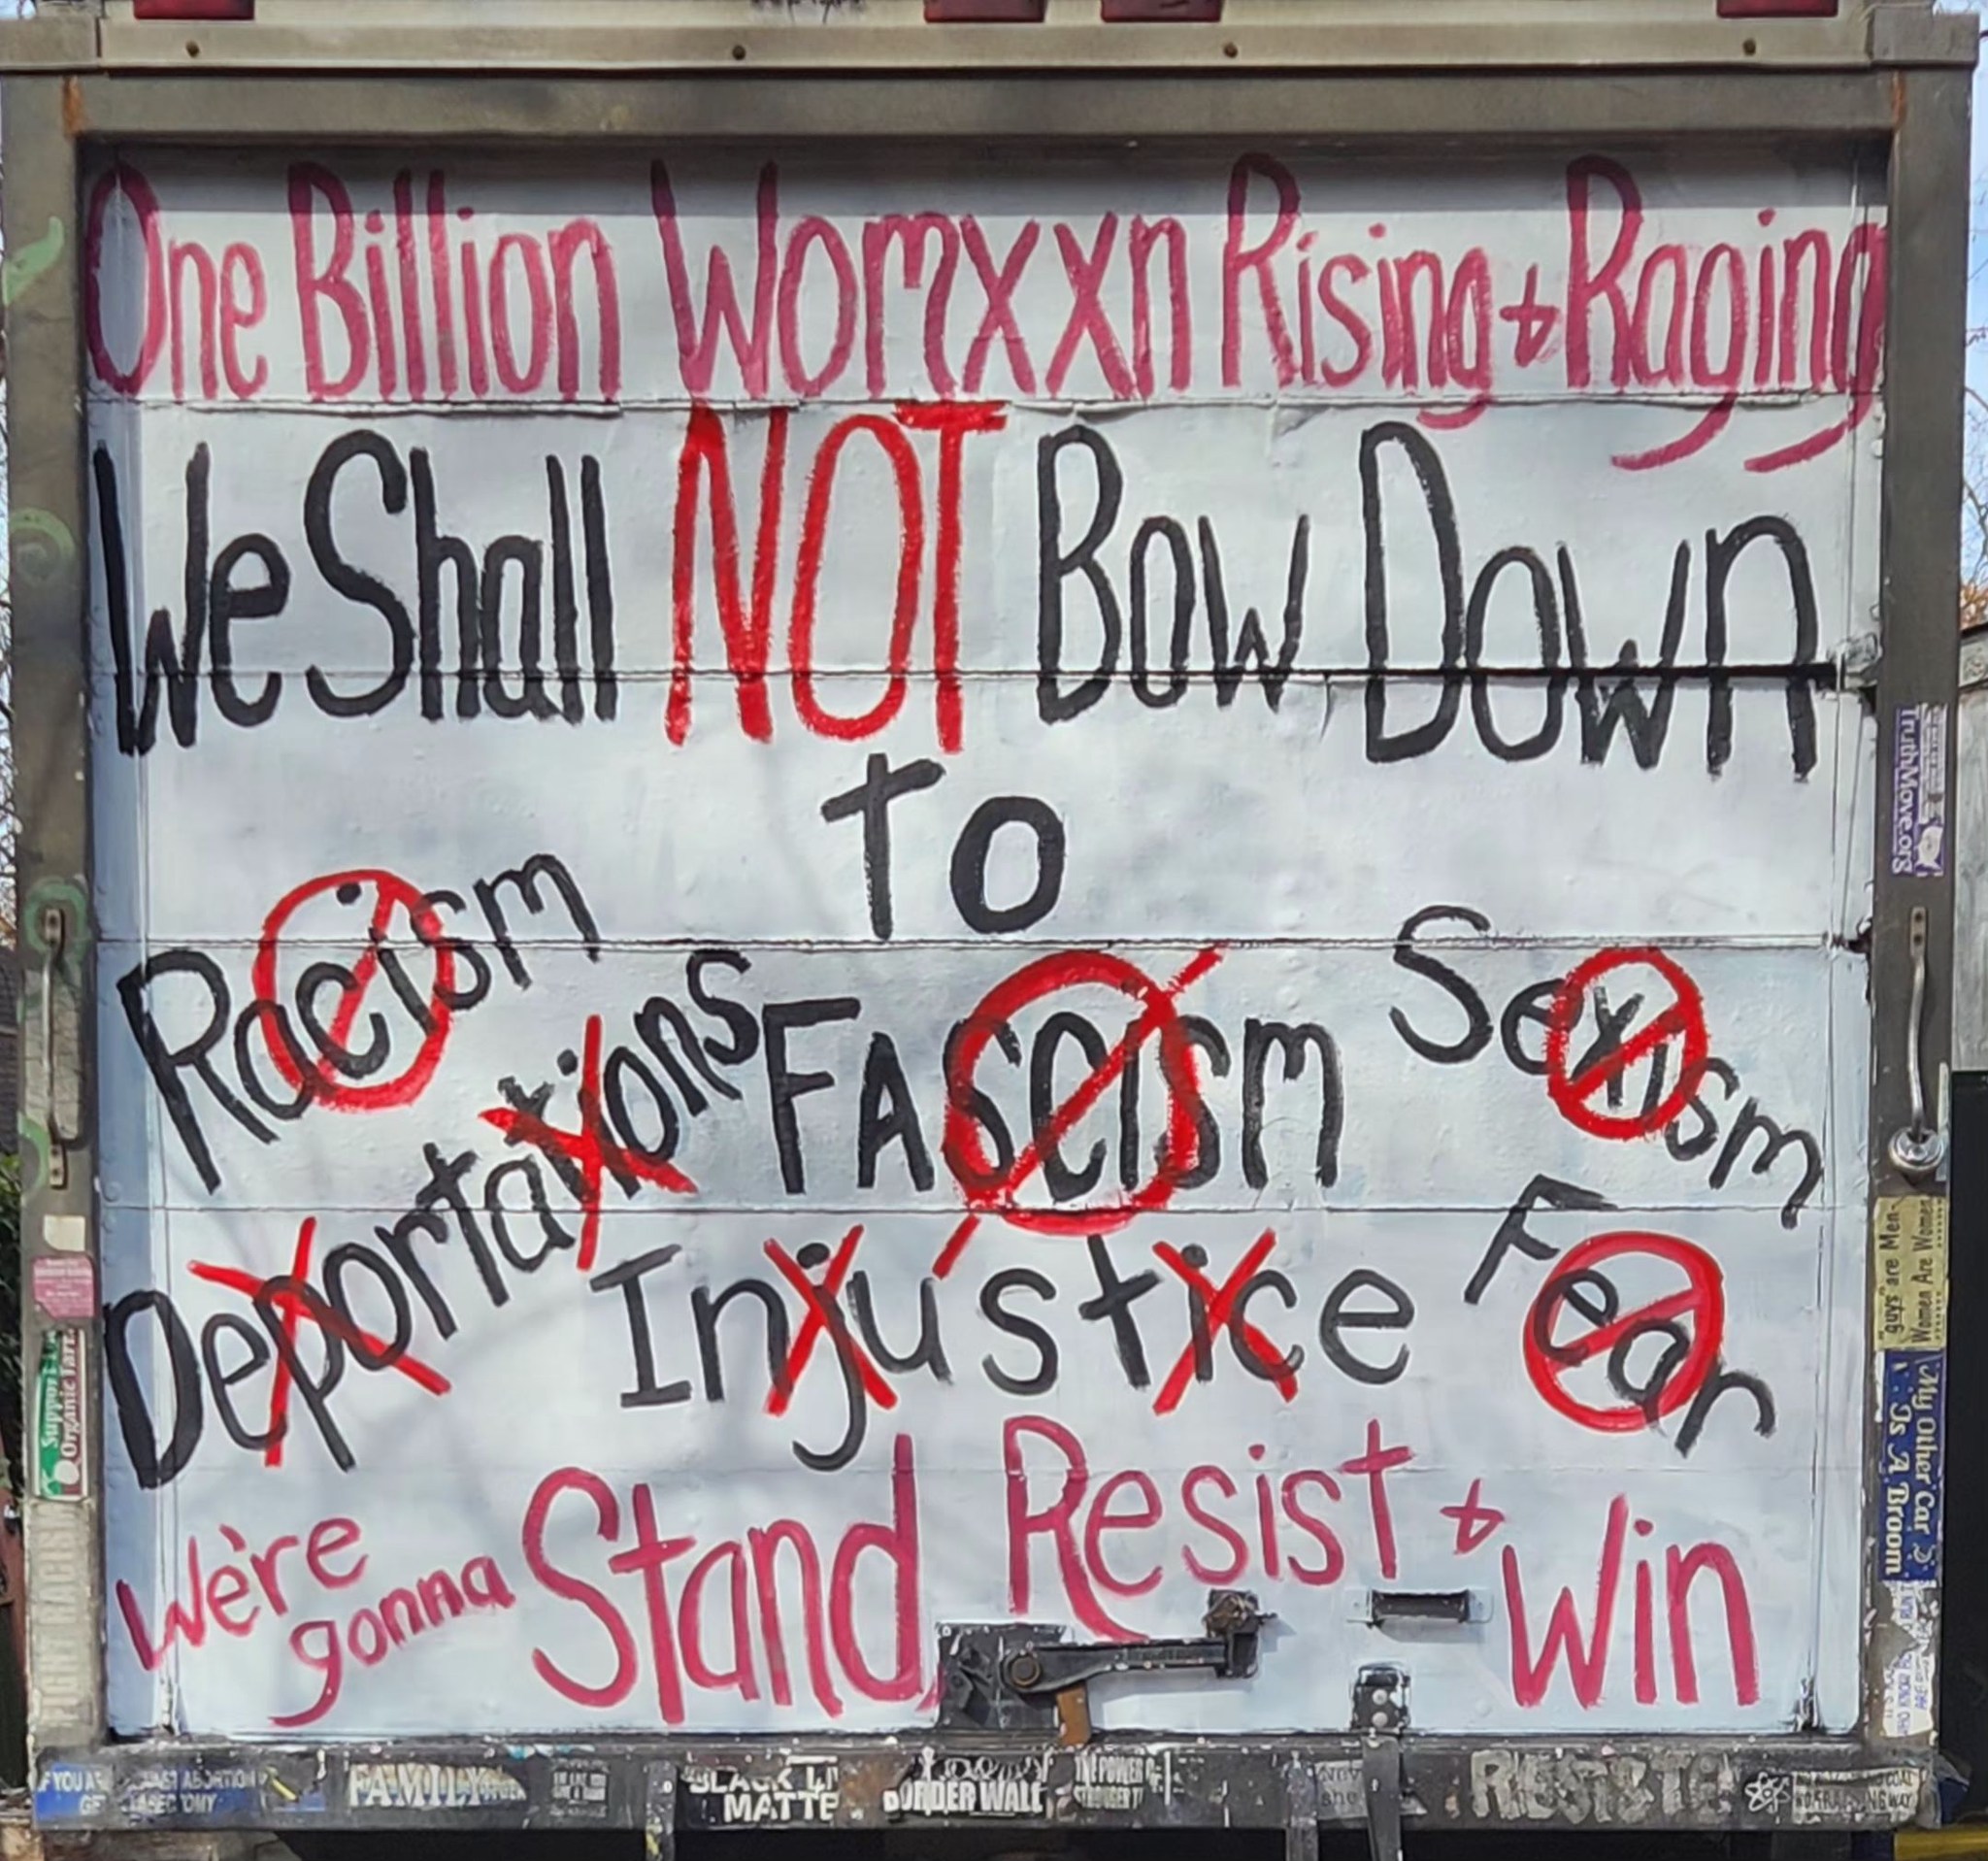 One Billion Womxxn Rising & Raging
We Shall NOT Bow Down
to
Racism
Sexism
Deportations
FAscism
Injustice
Fear
We're gonna Stand, Resist & Win
TruthMove.org
"guys" are Men-
Women Are Women
My Other Car
Is A Broom
Support
Organic Farm
FIGHT RACISM
FAMILY
BLACK LI
MATTE
BORDER WALL
THE POWER OF
RESIST